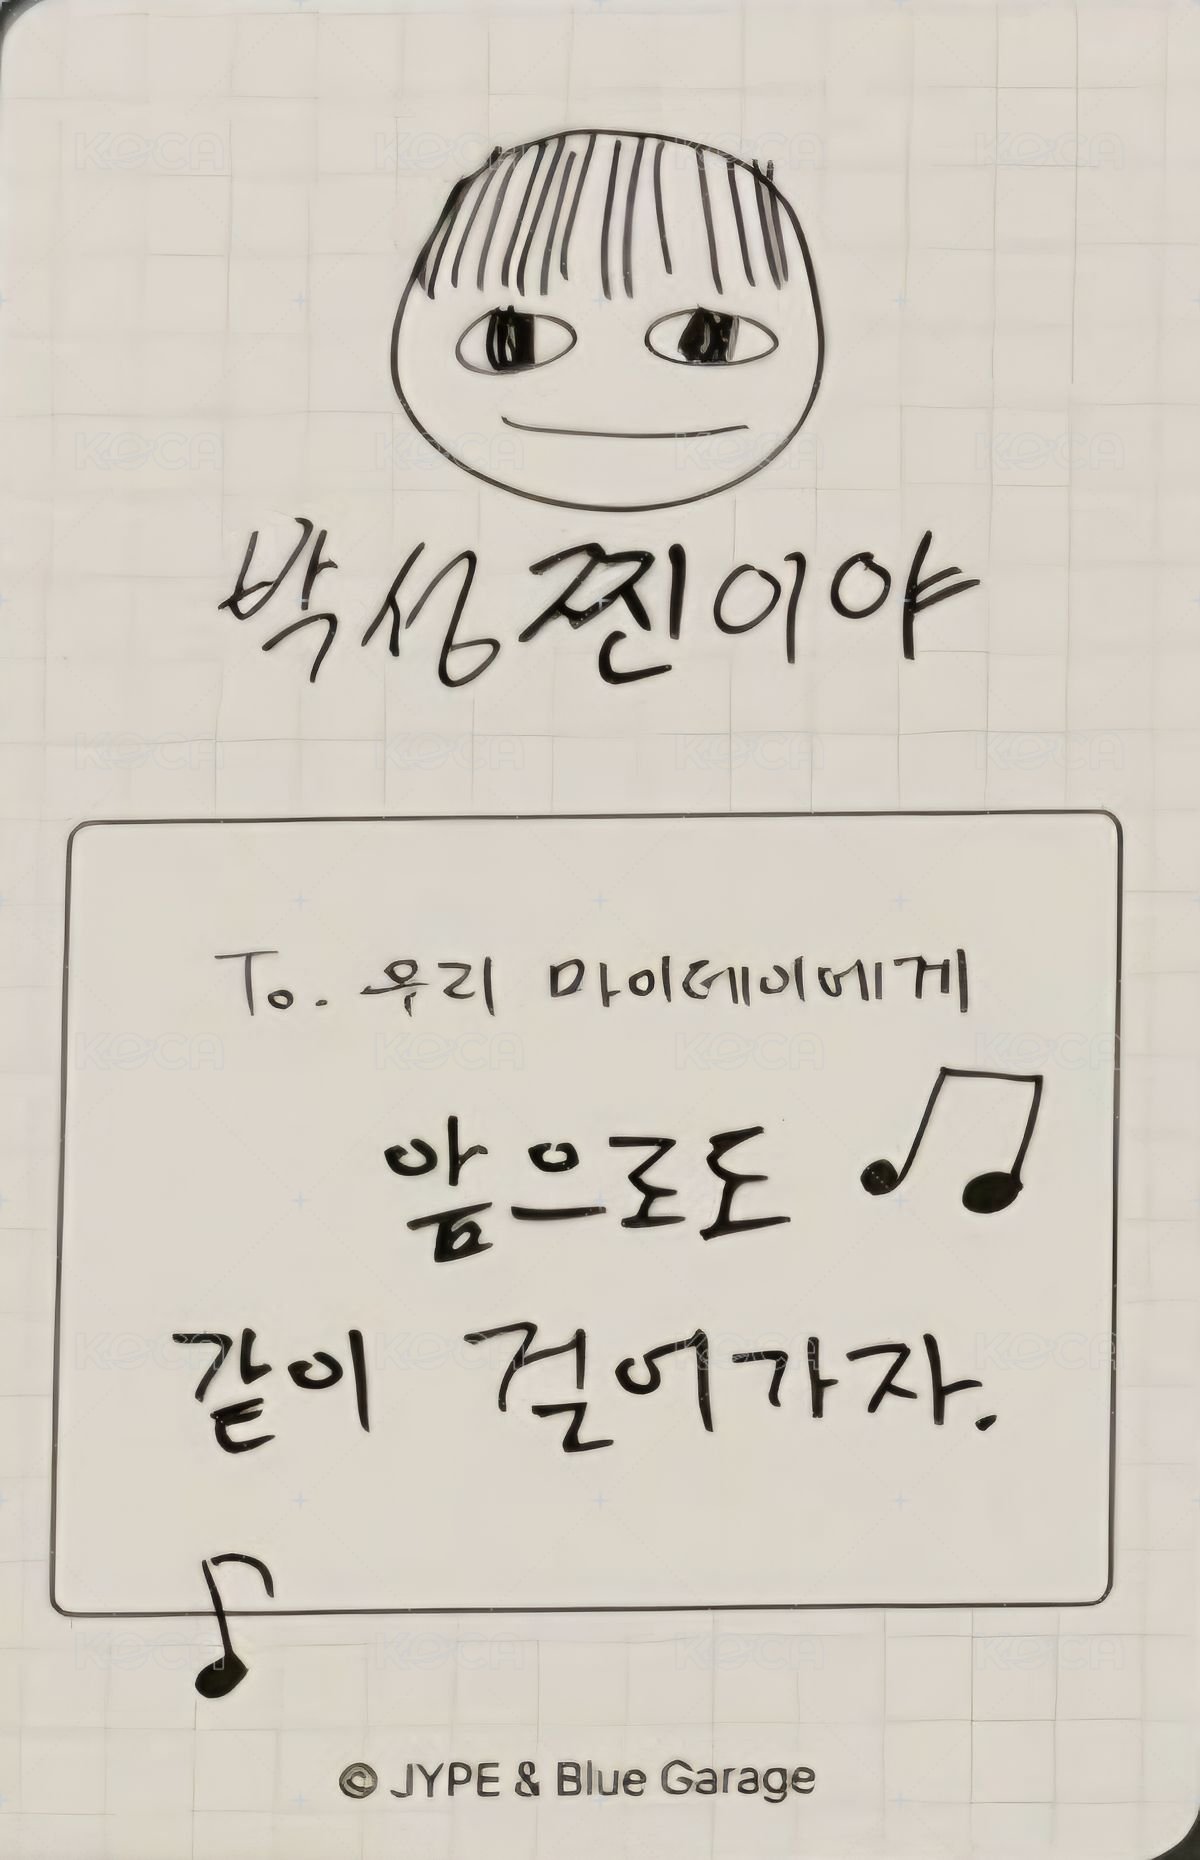 박성찐이야
To. 우리 마이데이에게
앞으로도
같이 걸어가자.
© JYPE & Blue Garage
KOCA